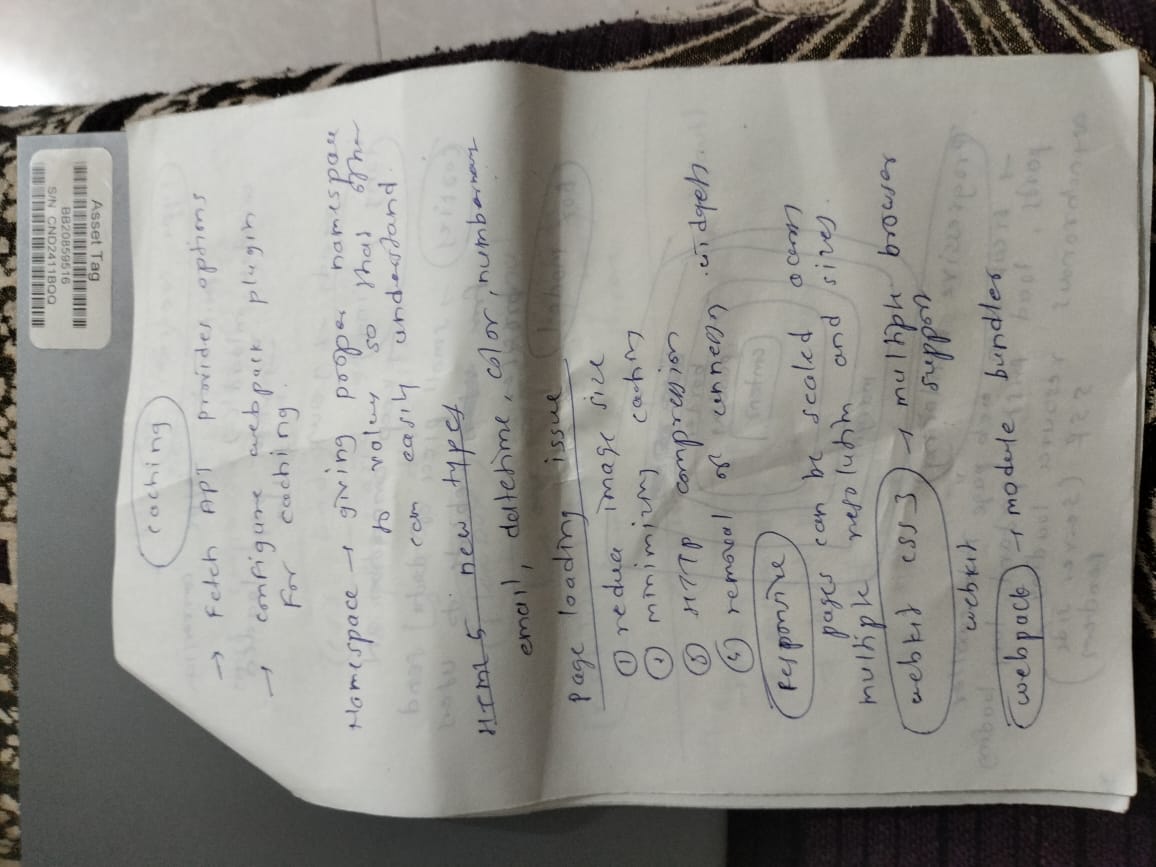 Asset Tag
BB20859516
S/N CND2411BQQ
caching
→ Fetch API provides options
→ configure webpack plugin
for caching.
Namespace → giving proper namespace
to values so that other
can easily understand.
HTML 5 new types
email, datetime, color, number
Page loading issue
① reduce image size
② minimizing caching
③ HTTP compression
④ removal of unnecessary widgets
responsive
pages can be scaled across
multiple resolution and sizes.
webkit css 3 → multiple browser
webkit support
webpack → module bundler